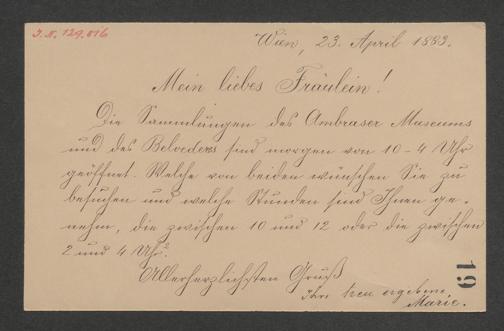 J. N. 129.816
Wien, 23. April 1883.
Mein liebes Fräulein!
Die Sammlungen des Ambraser Museums
und des Belvederes sind morgen von 10-4 Uhr
geöffnet. Welche von beiden wünschen Sie zu
besuchen und welche Stunden sind Ihnen ge-
nehm, die zwischen 10 und 12 oder die zwischen
2 und 4 Uhr?
Allerherzlichsten Gruß
Ihre treu ergebene
Marie.
19